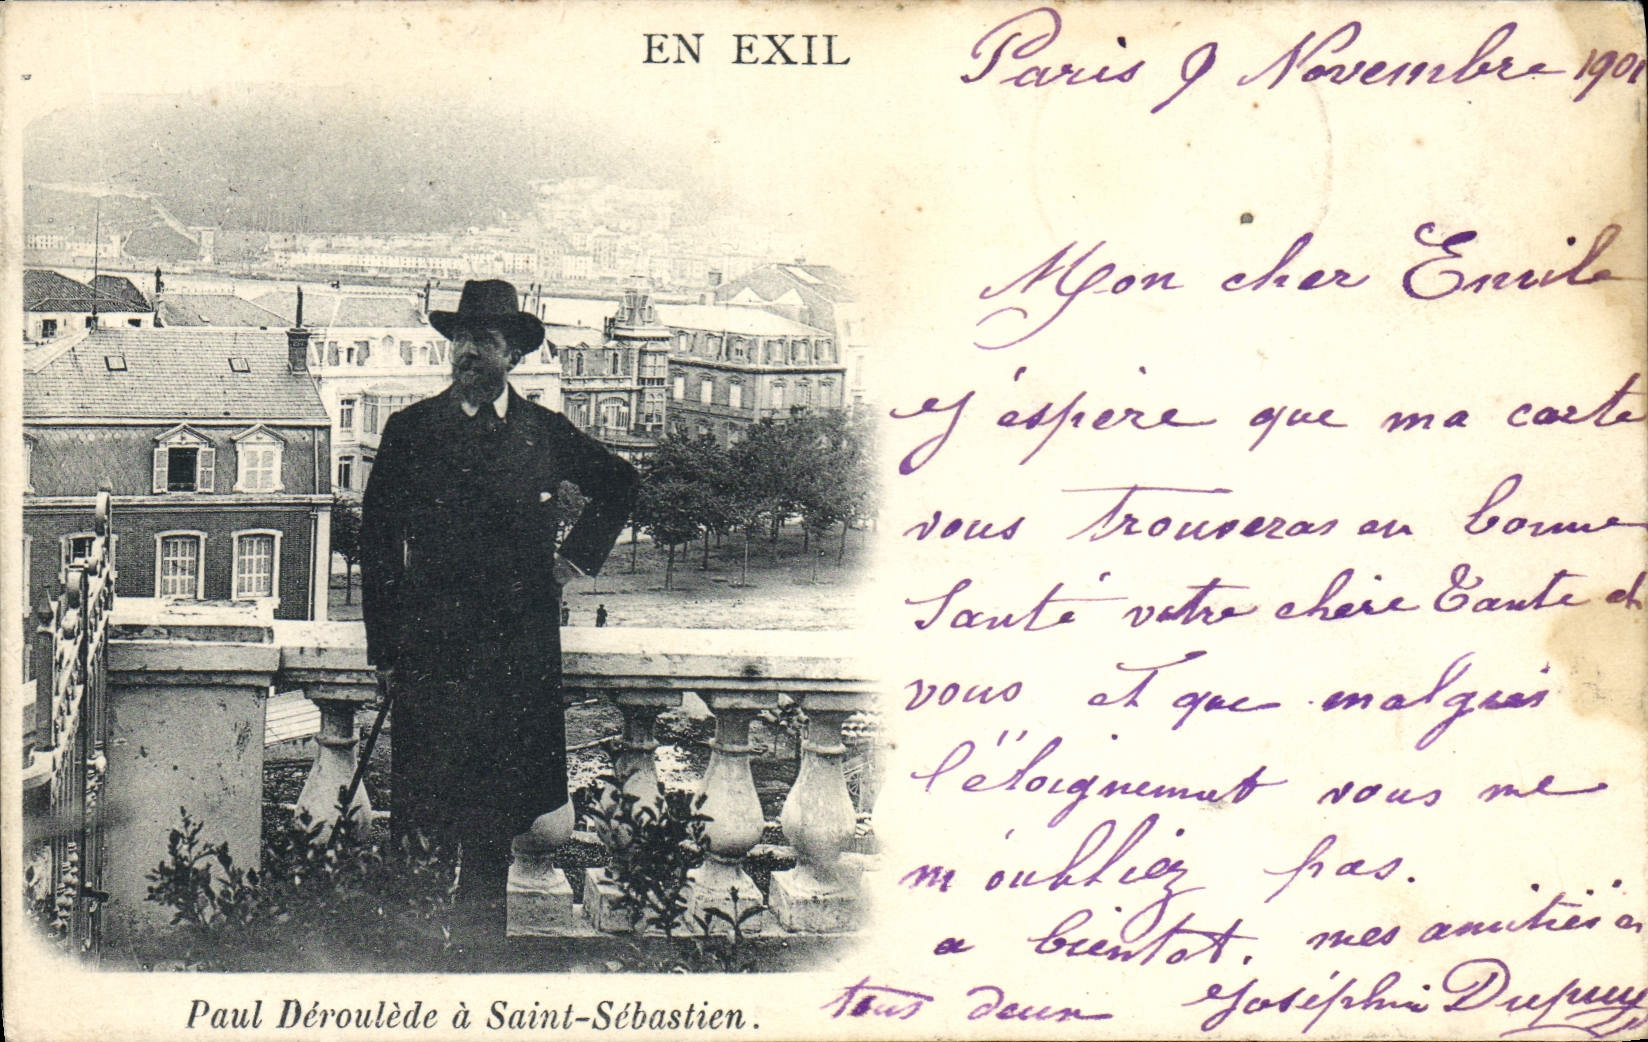 EN EXIL
Paris 9 Novembre 1901
Mon cher Emile
J'éspère que ma carte
vous trouveras en bonne
Santé votre chère Tante et
vous et que malgrés
l'éloignement vous me
m'oubliez pas.
a bientot. mes amitiés a
tous deux Joséphine Dupuy
Paul Déroulède à Saint-Sébastien.